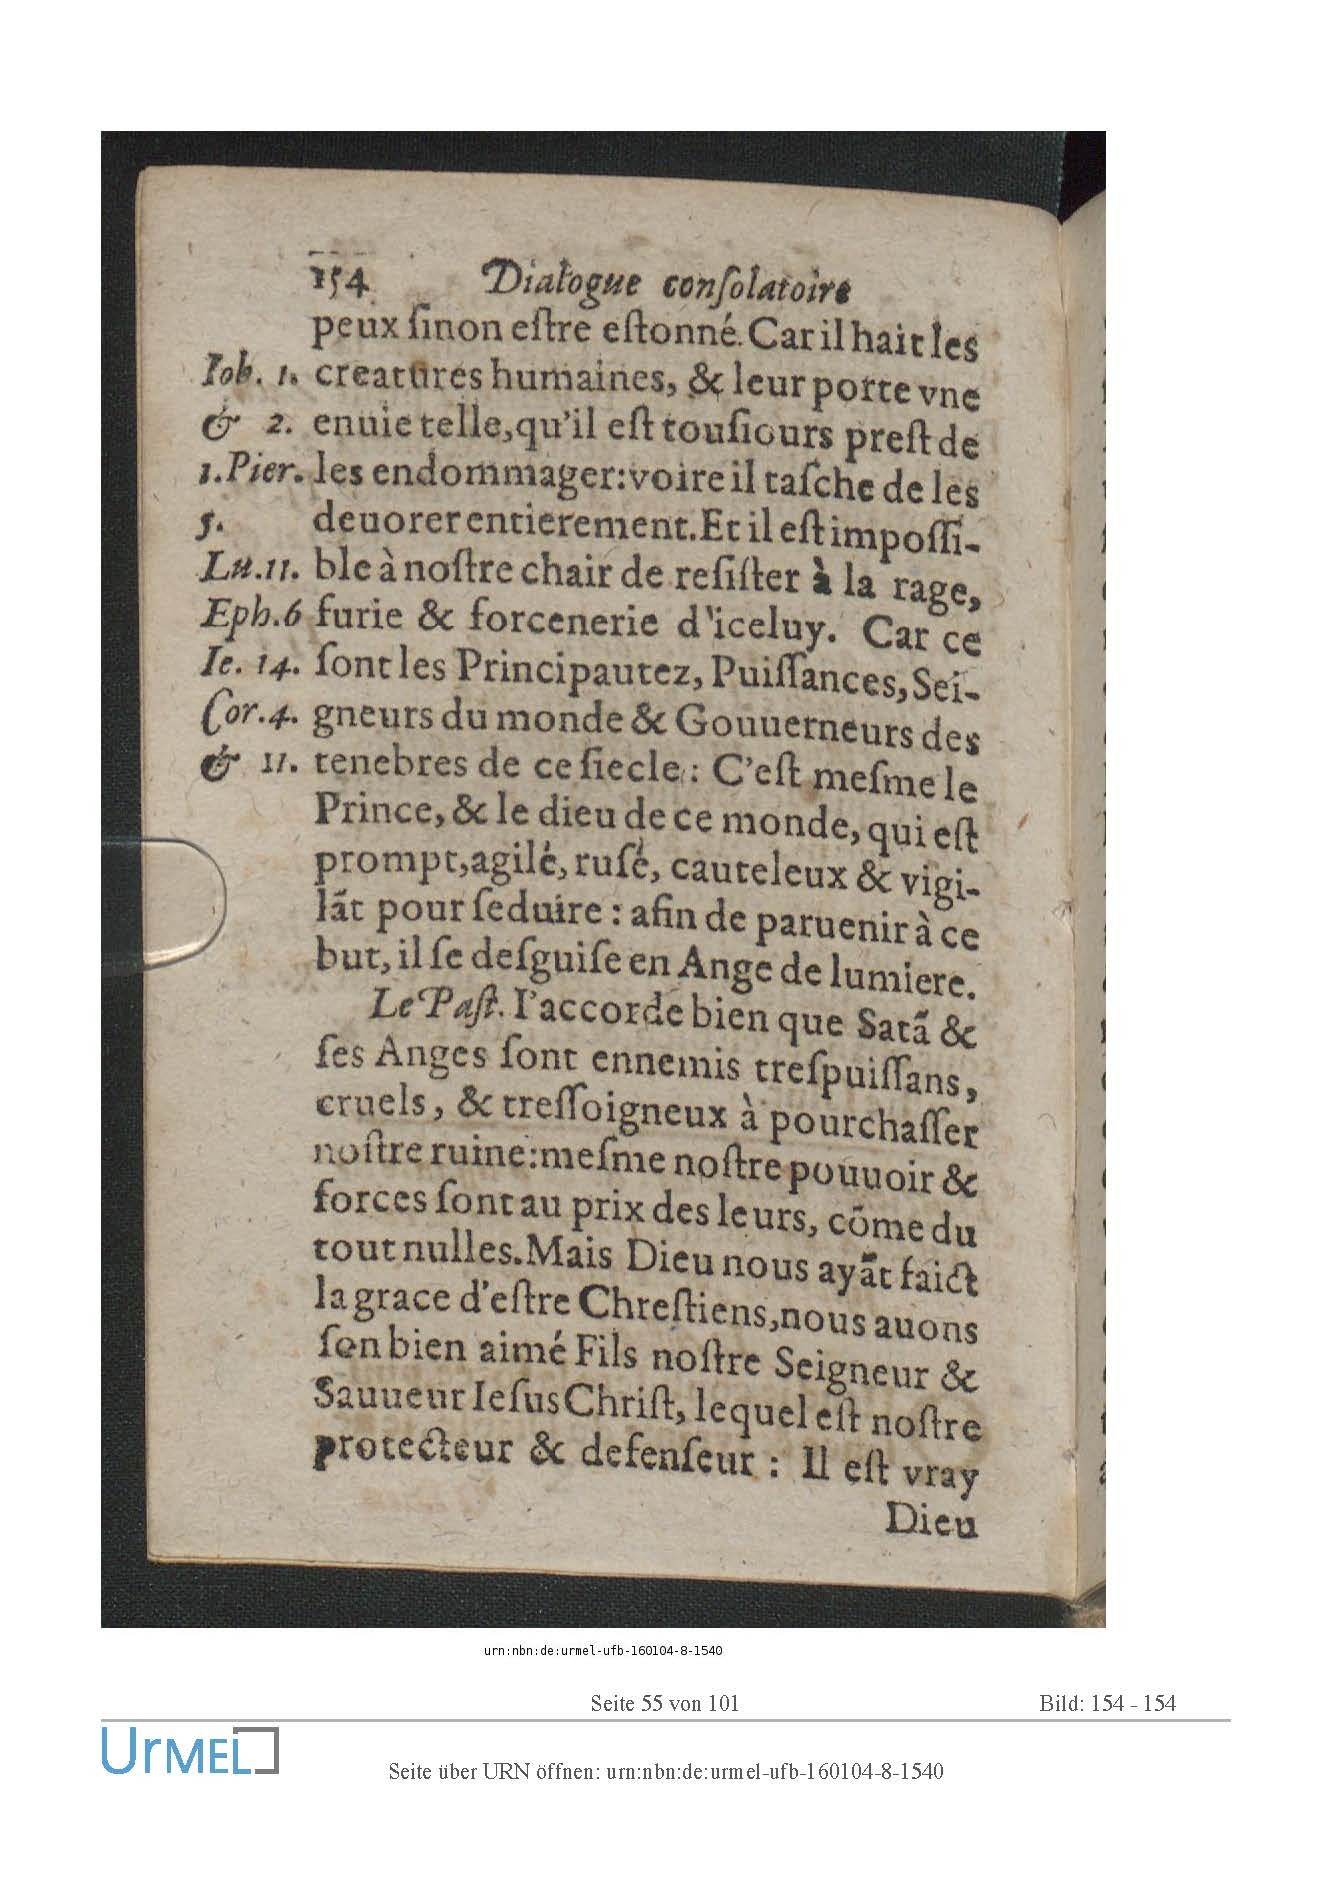 154 Dialogue conſolatoire
peux ſinon eſtre eſtonné. Car il hait les
Iob. 1. creatures humaines, & leur porte vne
& 2. enuie telle, qu'il eſt touſiours preſt de
1. Pier. les endommager: voire il taſche de les
5. deuorer entierement. Et il eſt impoſſi-
Lu. 11. ble à noſtre chair de reſiſter à la rage,
Eph. 6 furie & forcenerie d'iceluy. Car ce
Ie. 14. ſont les Principautez, Puiſſances, Sei-
Cor. 4. gneurs du monde & Gouuerneurs des
& 11. tenebres de ce ſiecle: C'eſt meſme le
Prince, & le dieu de ce monde, qui eſt
prompt, agilé, ruſé, cauteleux & vigi-
lãt pour ſeduire: afin de paruenir à ce
but, il ſe deſguiſe en Ange de lumiere.
Le Paſt. I'accorde bien que Satã &
ſes Anges ſont ennemis treſpuiſſans,
cruels, & treſſoigneux à pourchaſſer
noſtre ruine: meſme noſtre pouuoir &
forces ſont au prix des leurs, cõme du
tout nulles. Mais Dieu nous ayãt faict
la grace d'eſtre Chreſtiens, nous auons
ſon bien aimé Fils noſtre Seigneur &
Sauueur Ieſus Chriſt, lequel eſt noſtre
protecteur & defenſeur: Il eſt vray
Dieu
urn:nbn:de:urmel-ufb-160104-8-1540
Seite 55 von 101 Bild: 154 - 154
UrMEL
Seite über URN öffnen: urn:nbn:de:urmel-ufb-160104-8-1540